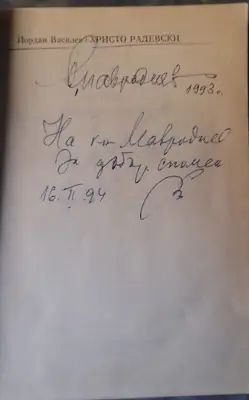 Йордан Василев / ХРИСТО РАДЕВСКИ
Мавродиев
1993 г.
На к-н Мавродиев
За добър спомен
16. II. 94